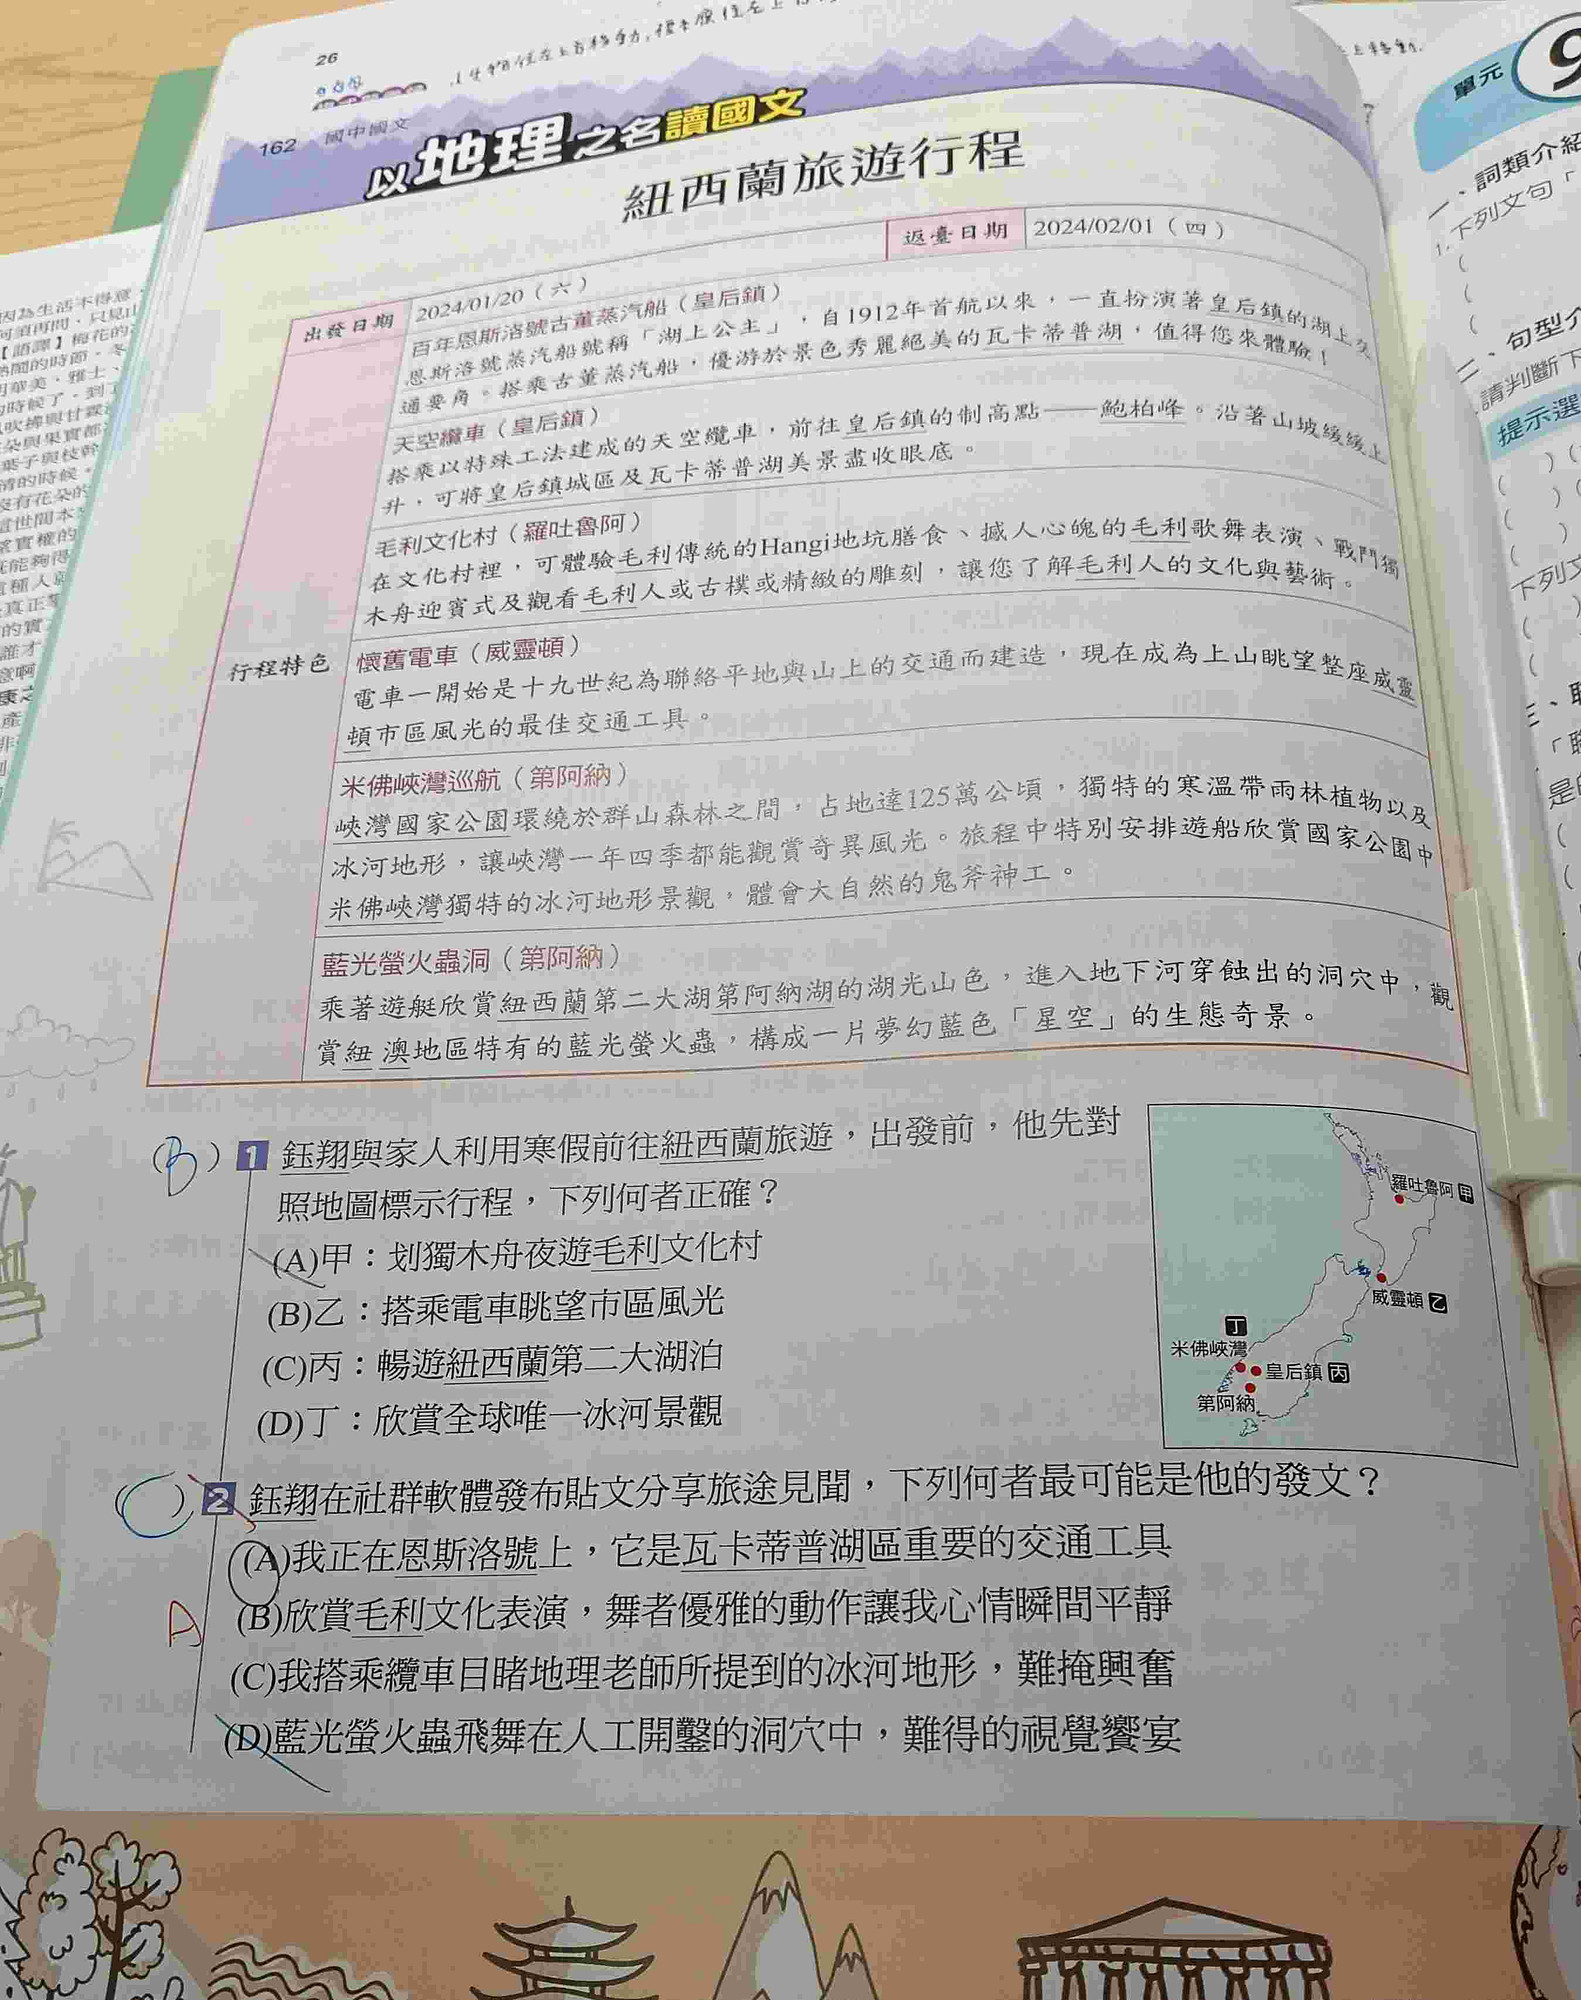 26
162 國中國文
以地理之名讀國文
紐西蘭旅遊行程
出發日期 2024/01/20（六） 返臺日期 2024/02/01（四）
行程特色
百年恩斯洛號古董蒸汽船（皇后鎮）
恩斯洛號蒸汽船號稱「湖上公主」，自1912年首航以來，一直扮演著皇后鎮的湖上交
通要角。搭乘古董蒸汽船，優游於景色秀麗絕美的瓦卡蒂普湖，值得您來體驗！
天空纜車（皇后鎮）
搭乘以特殊工法建成的天空纜車，前往皇后鎮的制高點——鮑柏峰。沿著山坡緩緩上
升，可將皇后鎮城區及瓦卡蒂普湖美景盡收眼底。
毛利文化村（羅吐魯阿）
在文化村裡，可體驗毛利傳統的Hangi地坑膳食、撼人心魄的毛利歌舞表演、戰鬥獨
木舟迎賓式及觀看毛利人或古樸或精緻的雕刻，讓您了解毛利人的文化與藝術。
懷舊電車（威靈頓）
電車一開始是十九世紀為聯絡平地與山上的交通而建造，現在成為上山眺望整座威靈
頓市區風光的最佳交通工具。
米佛峽灣巡航（第阿納）
峽灣國家公園環繞於群山森林之間，占地達125萬公頃，獨特的寒溫帶雨林植物以及
冰河地形，讓峽灣一年四季都能觀賞奇異風光。旅程中特別安排遊船欣賞國家公園中
米佛峽灣獨特的冰河地形景觀，體會大自然的鬼斧神工。
藍光螢火蟲洞（第阿納）
乘著遊艇欣賞紐西蘭第二大湖第阿納湖的湖光山色，進入地下河穿蝕出的洞穴中，觀
賞紐澳地區特有的藍光螢火蟲，構成一片夢幻藍色「星空」的生態奇景。
(B) 1 鈺翔與家人利用寒假前往紐西蘭旅遊，出發前，他先對
照地圖標示行程，下列何者正確？
(A)甲：划獨木舟夜遊毛利文化村
(B)乙：搭乘電車眺望市區風光
(C)丙：暢遊紐西蘭第二大湖泊
(D)丁：欣賞全球唯一冰河景觀
羅吐魯阿 甲
威靈頓 乙
丁
米佛峽灣
皇后鎮 丙
第阿納
(C) 2 鈺翔在社群軟體發布貼文分享旅途見聞，下列何者最可能是他的發文？
(A)我正在恩斯洛號上，它是瓦卡蒂普湖區重要的交通工具
A
(B)欣賞毛利文化表演，舞者優雅的動作讓我心情瞬間平靜
(C)我搭乘纜車目睹地理老師所提到的冰河地形，難掩興奮
(D)藍光螢火蟲飛舞在人工開鑿的洞穴中，難得的視覺饗宴
單元 9
一、詞類介紹
1.下列文句「
二、句型介
請判斷下
提示選
下列文
三、